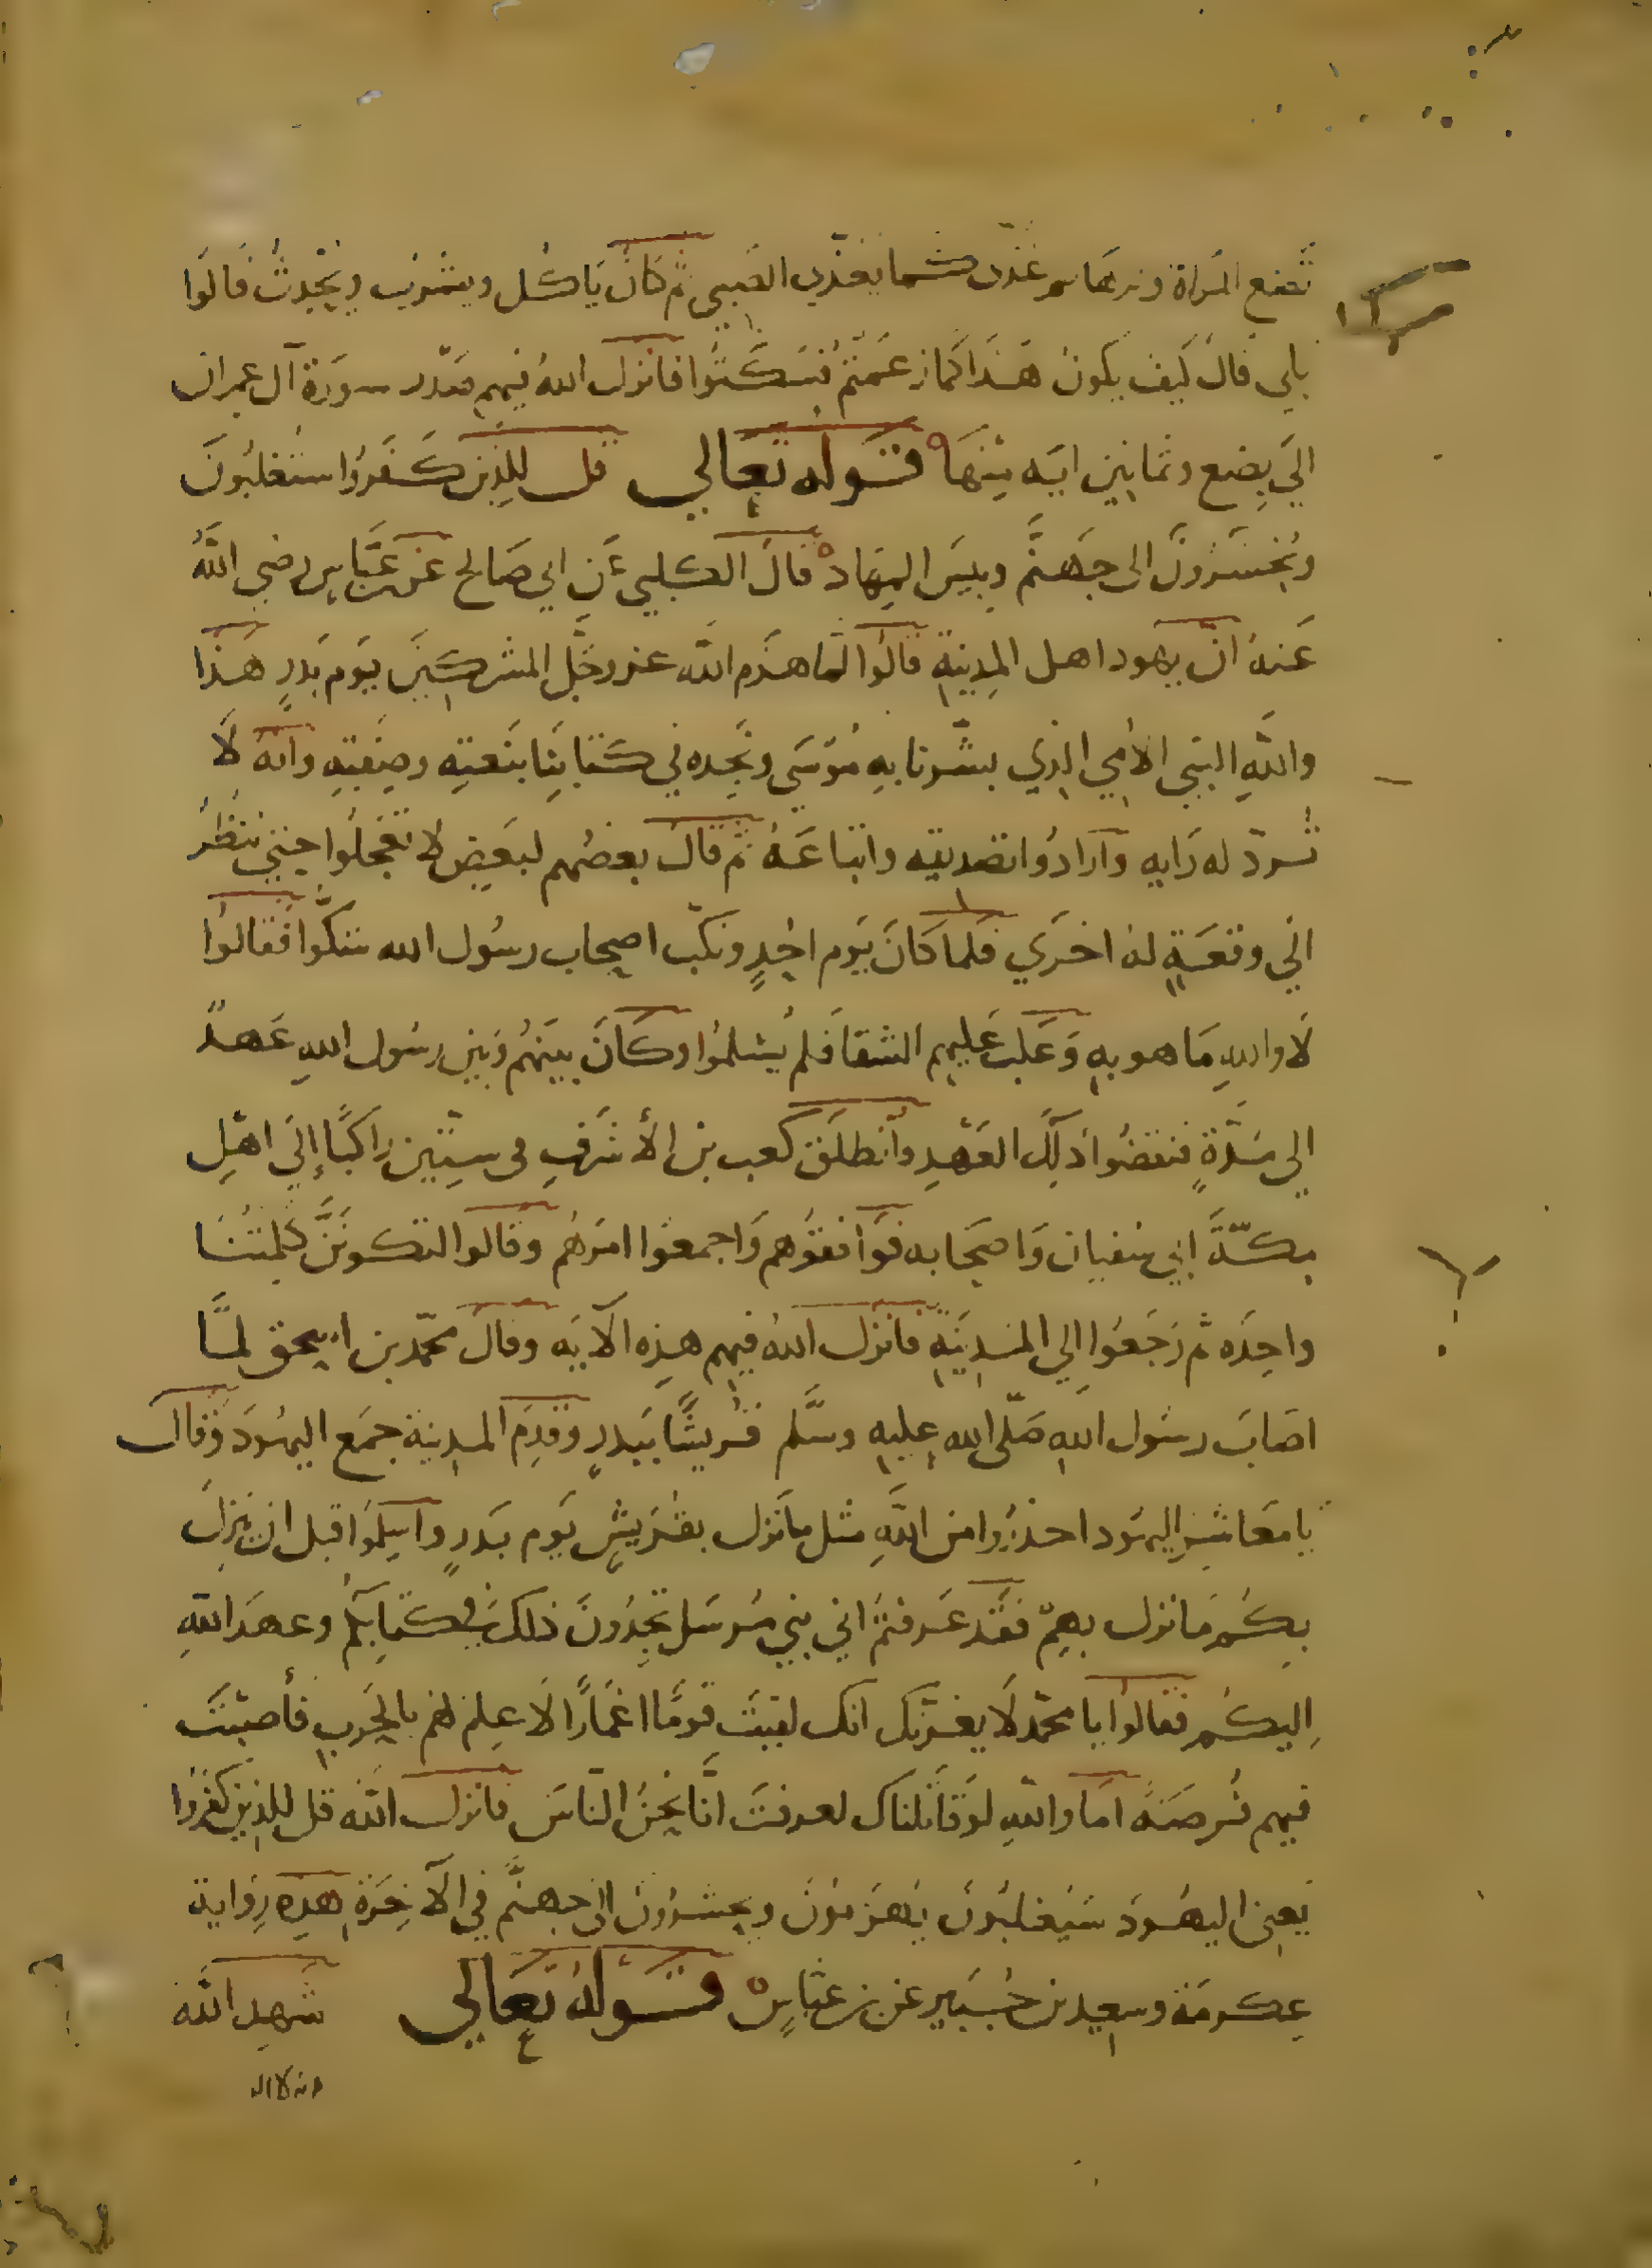 تضع المراة ولدها ثم غذي كما يغذي الصبي ثم كان ياكل ويشرب ويحدث قالوا
بلي قال كيف يكون هذا كما زعمتم فسكتوا فانزل الله فيهم صدر سورة آل عمران
الي بضع وثمانين ايه منها قوله تعالي قل للذين كفروا ستغلبون
وتحشرون الى جهنم وبيس المهاد قال الكلبي عن ابي صالح عن بن عباس رضي الله
عنه ان يهود اهل المدينة قالوا لما هزم الله عز وجل المشركين يوم بدر هذا
والله النبي الامي الذي بشرنا به موسى ونجده في كتابنا بنعته وصفته وانه لا
ترد له رايه وارادوا تصديقه واتباعه ثم قال بعضهم لبعض لا تعجلوا حتي ننظر
الي وقعة له اخري فلما كان يوم احد ونكب اصحاب رسول الله شكوا فقالوا
لا والله ما هو به وغلب عليهم الشقا فلم يسلموا وكان بينهم وبين رسول الله عهد
الي مدة فنقضوا ذلك العهد وانطلق كعب بن الأشرف في ستين راكبا إلي اهل
مكة ابي سفيان واصحابه فوافقوهم واجمعوا امرهم وقالوا لتكونن كلمتنا
واحده ثم رجعوا الي المدينة فانزل الله فيهم هذه الآيه وقال محمد بن اسحق لما
اصاب رسول الله صلى الله عليه وسلم قريشا ببدر وقدم المدينة جمع اليهود وقال
يا معاشر اليهود احذروا من الله مثل ما نزل بقريش يوم بدر واسلموا قبل ان ينزل
بكم ما نزل بهم فقد عرفتم اني نبي مرسل تجدون ذلك في كتابكم وعهد الله
اليكم فقالوا يا محمد لا يغرنك انك لقيت قوما اغمارا لا علم لهم بالحرب فأصبت
فيهم فرصة اما والله لو قاتلناك لعرفت انا نحن الناس فانزل الله قل للذين كفروا
يعني اليهود سيغلبون يهزمون ويحشرون الى جهنم في الآخرة هذه رواية
عكرمة وسعيد بن جبير عن بن عباس قوله تعالي شهد الله
انه لا اله